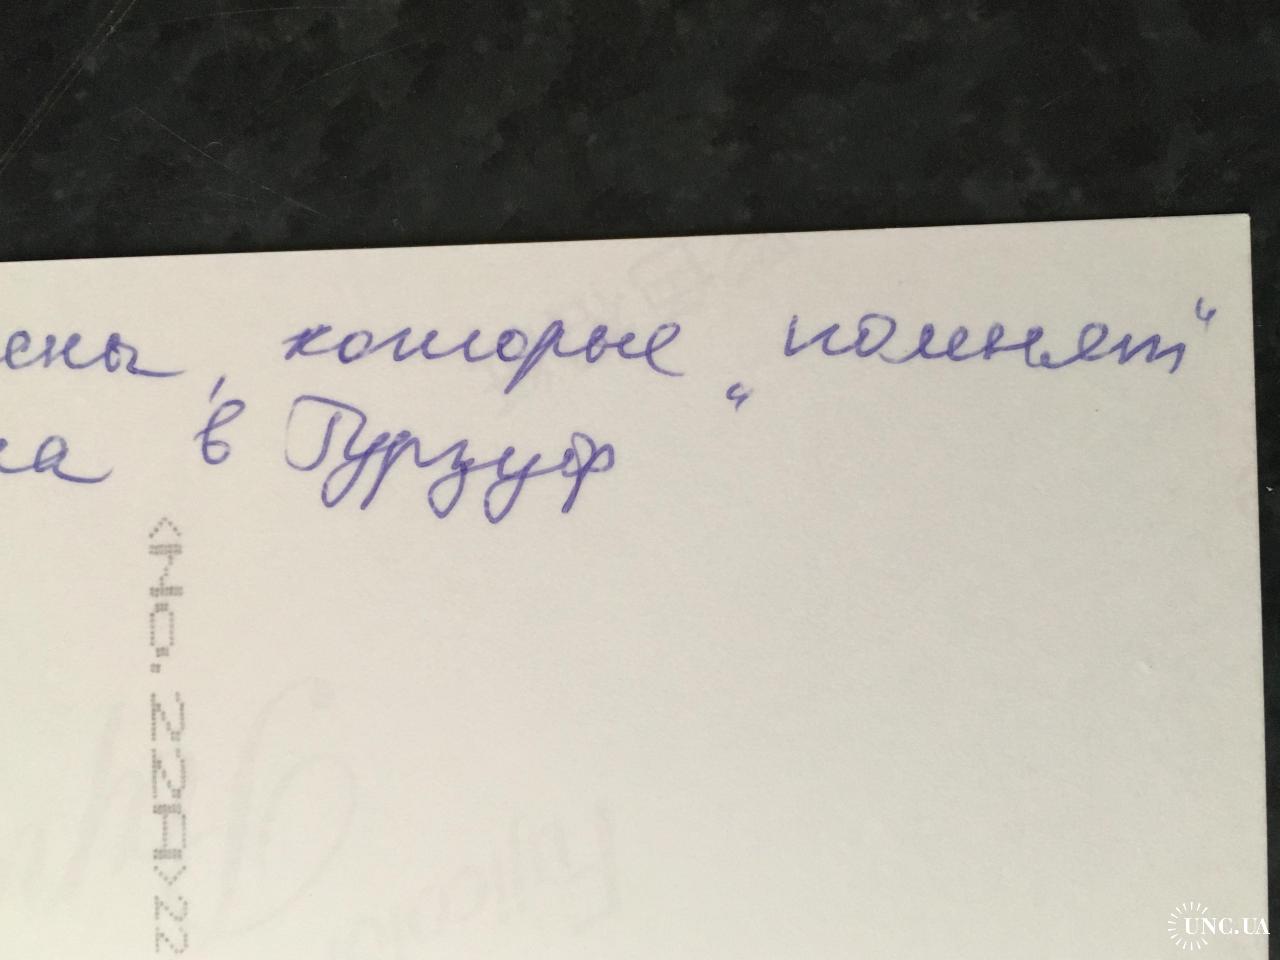 сны, которые „помнят“
на в Гурзуф
<No. 22A>22
UNC.UA